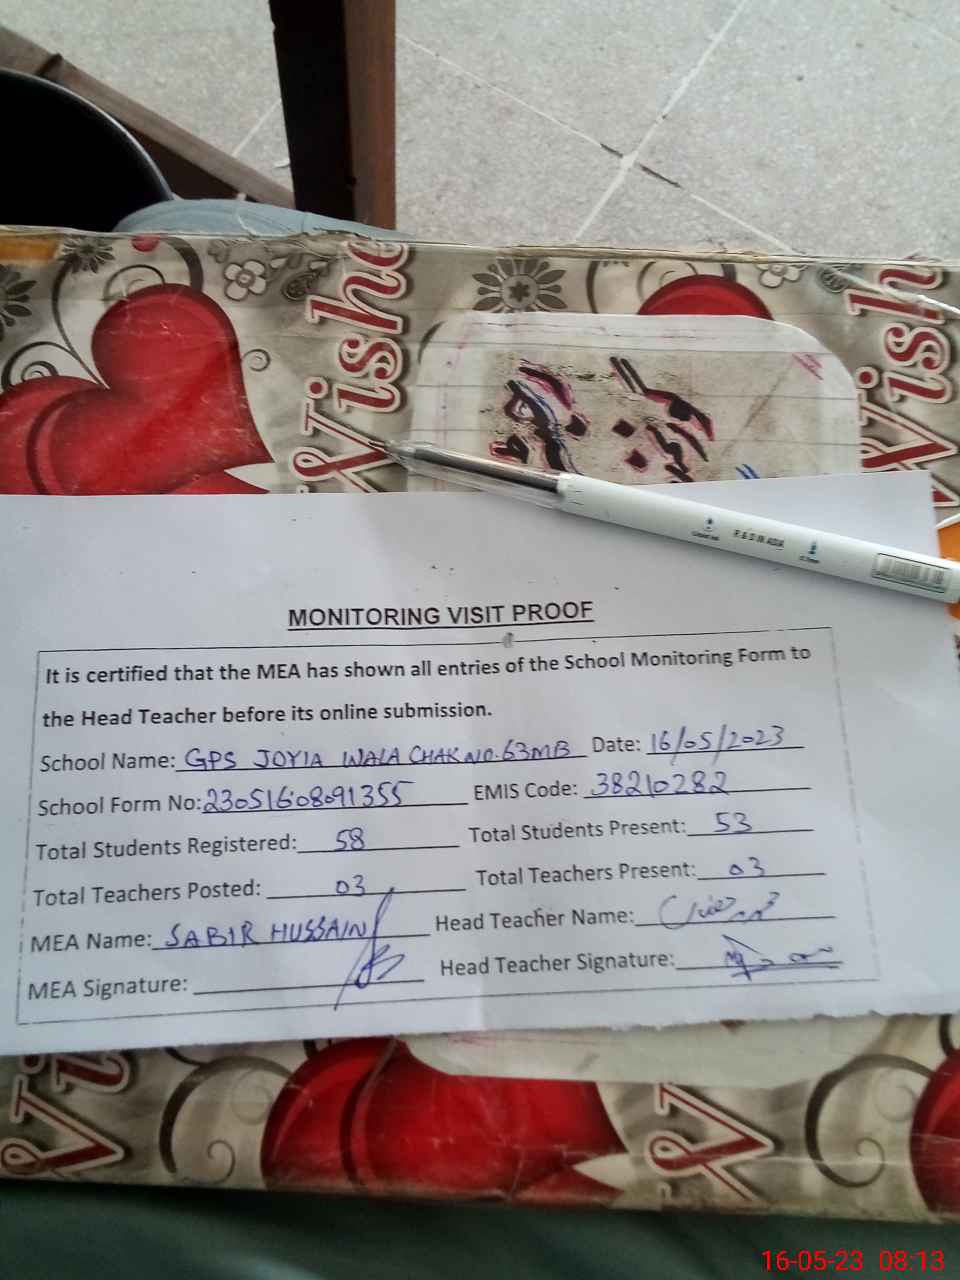 Wishe
Wish
Liquid Ink
R & D IN ASIA
0.7mm
MONITORING VISIT PROOF
It is certified that the MEA has shown all entries of the School Monitoring Form to
the Head Teacher before its online submission.
School Name: GPS JOYIA WALA CHAK NO. 63MB Date: 16/05/2023
School Form No: 23051608091355 EMIS Code: 38210282
Total Students Registered: 58 Total Students Present: 53
Total Teachers Posted: 03 Total Teachers Present: 03
MEA Name: SABIR HUSSAIN Head Teacher Name:
MEA Signature: Head Teacher Signature:
16-05-23 08:13